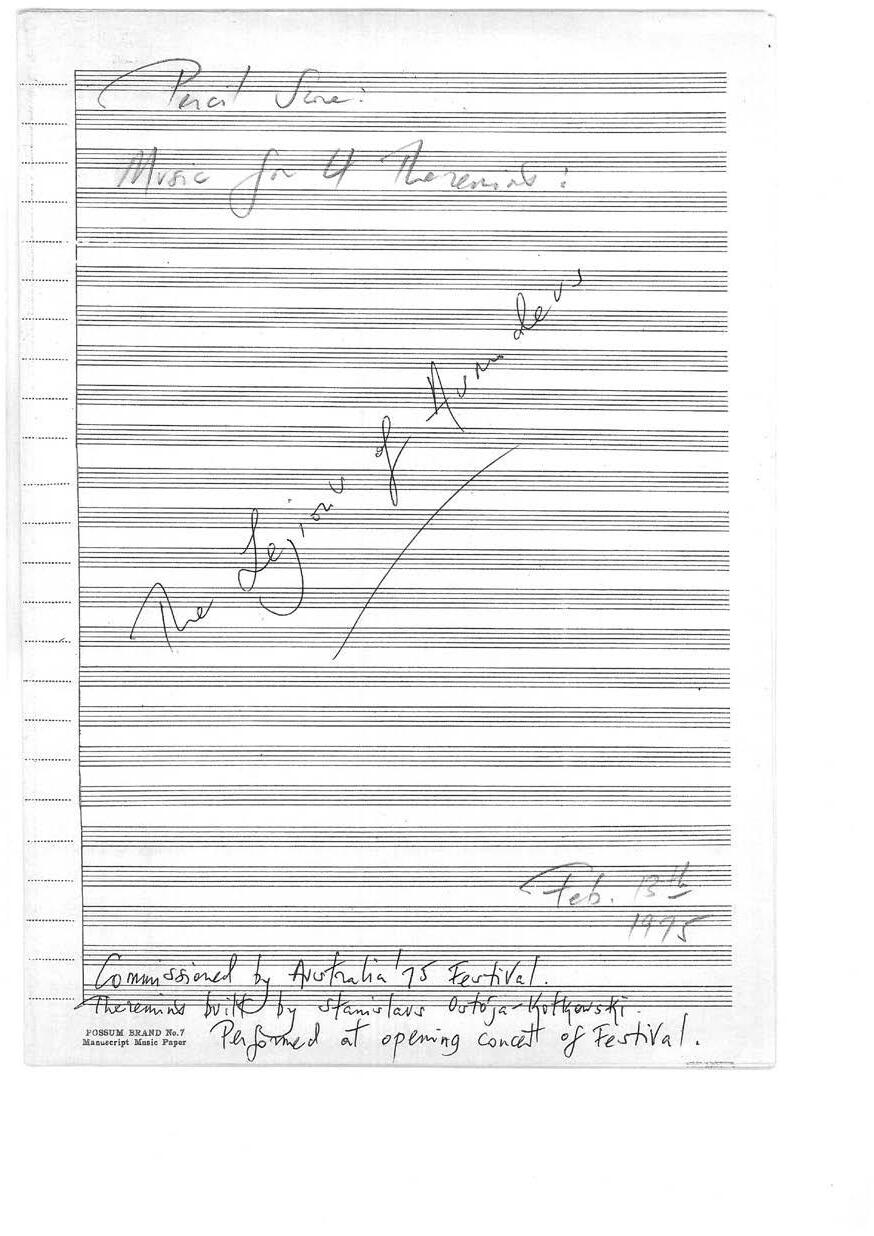 Pencil Score:
Music for 4 Theremins:
The Legions of Asmodeus
Feb. 13th
1975
Commissioned by Australia '75 Festival.
Theremins built by Stanislaus Ostoja-Kotkowski.
POSSUM BRAND No.7
Manuscript Music Paper
Performed at opening concert of Festival.